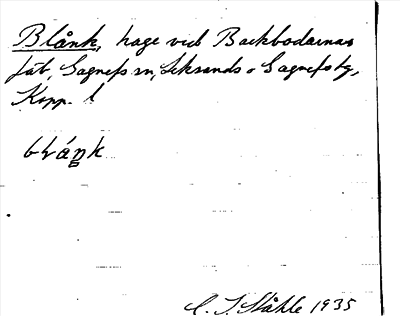 Blånk, hage vid Backbodarnas
fäb, Gagnefs sn, Leksands o Gagnefs tg,
Kopp. l
blåŋk
C. I. Ståhle 1935